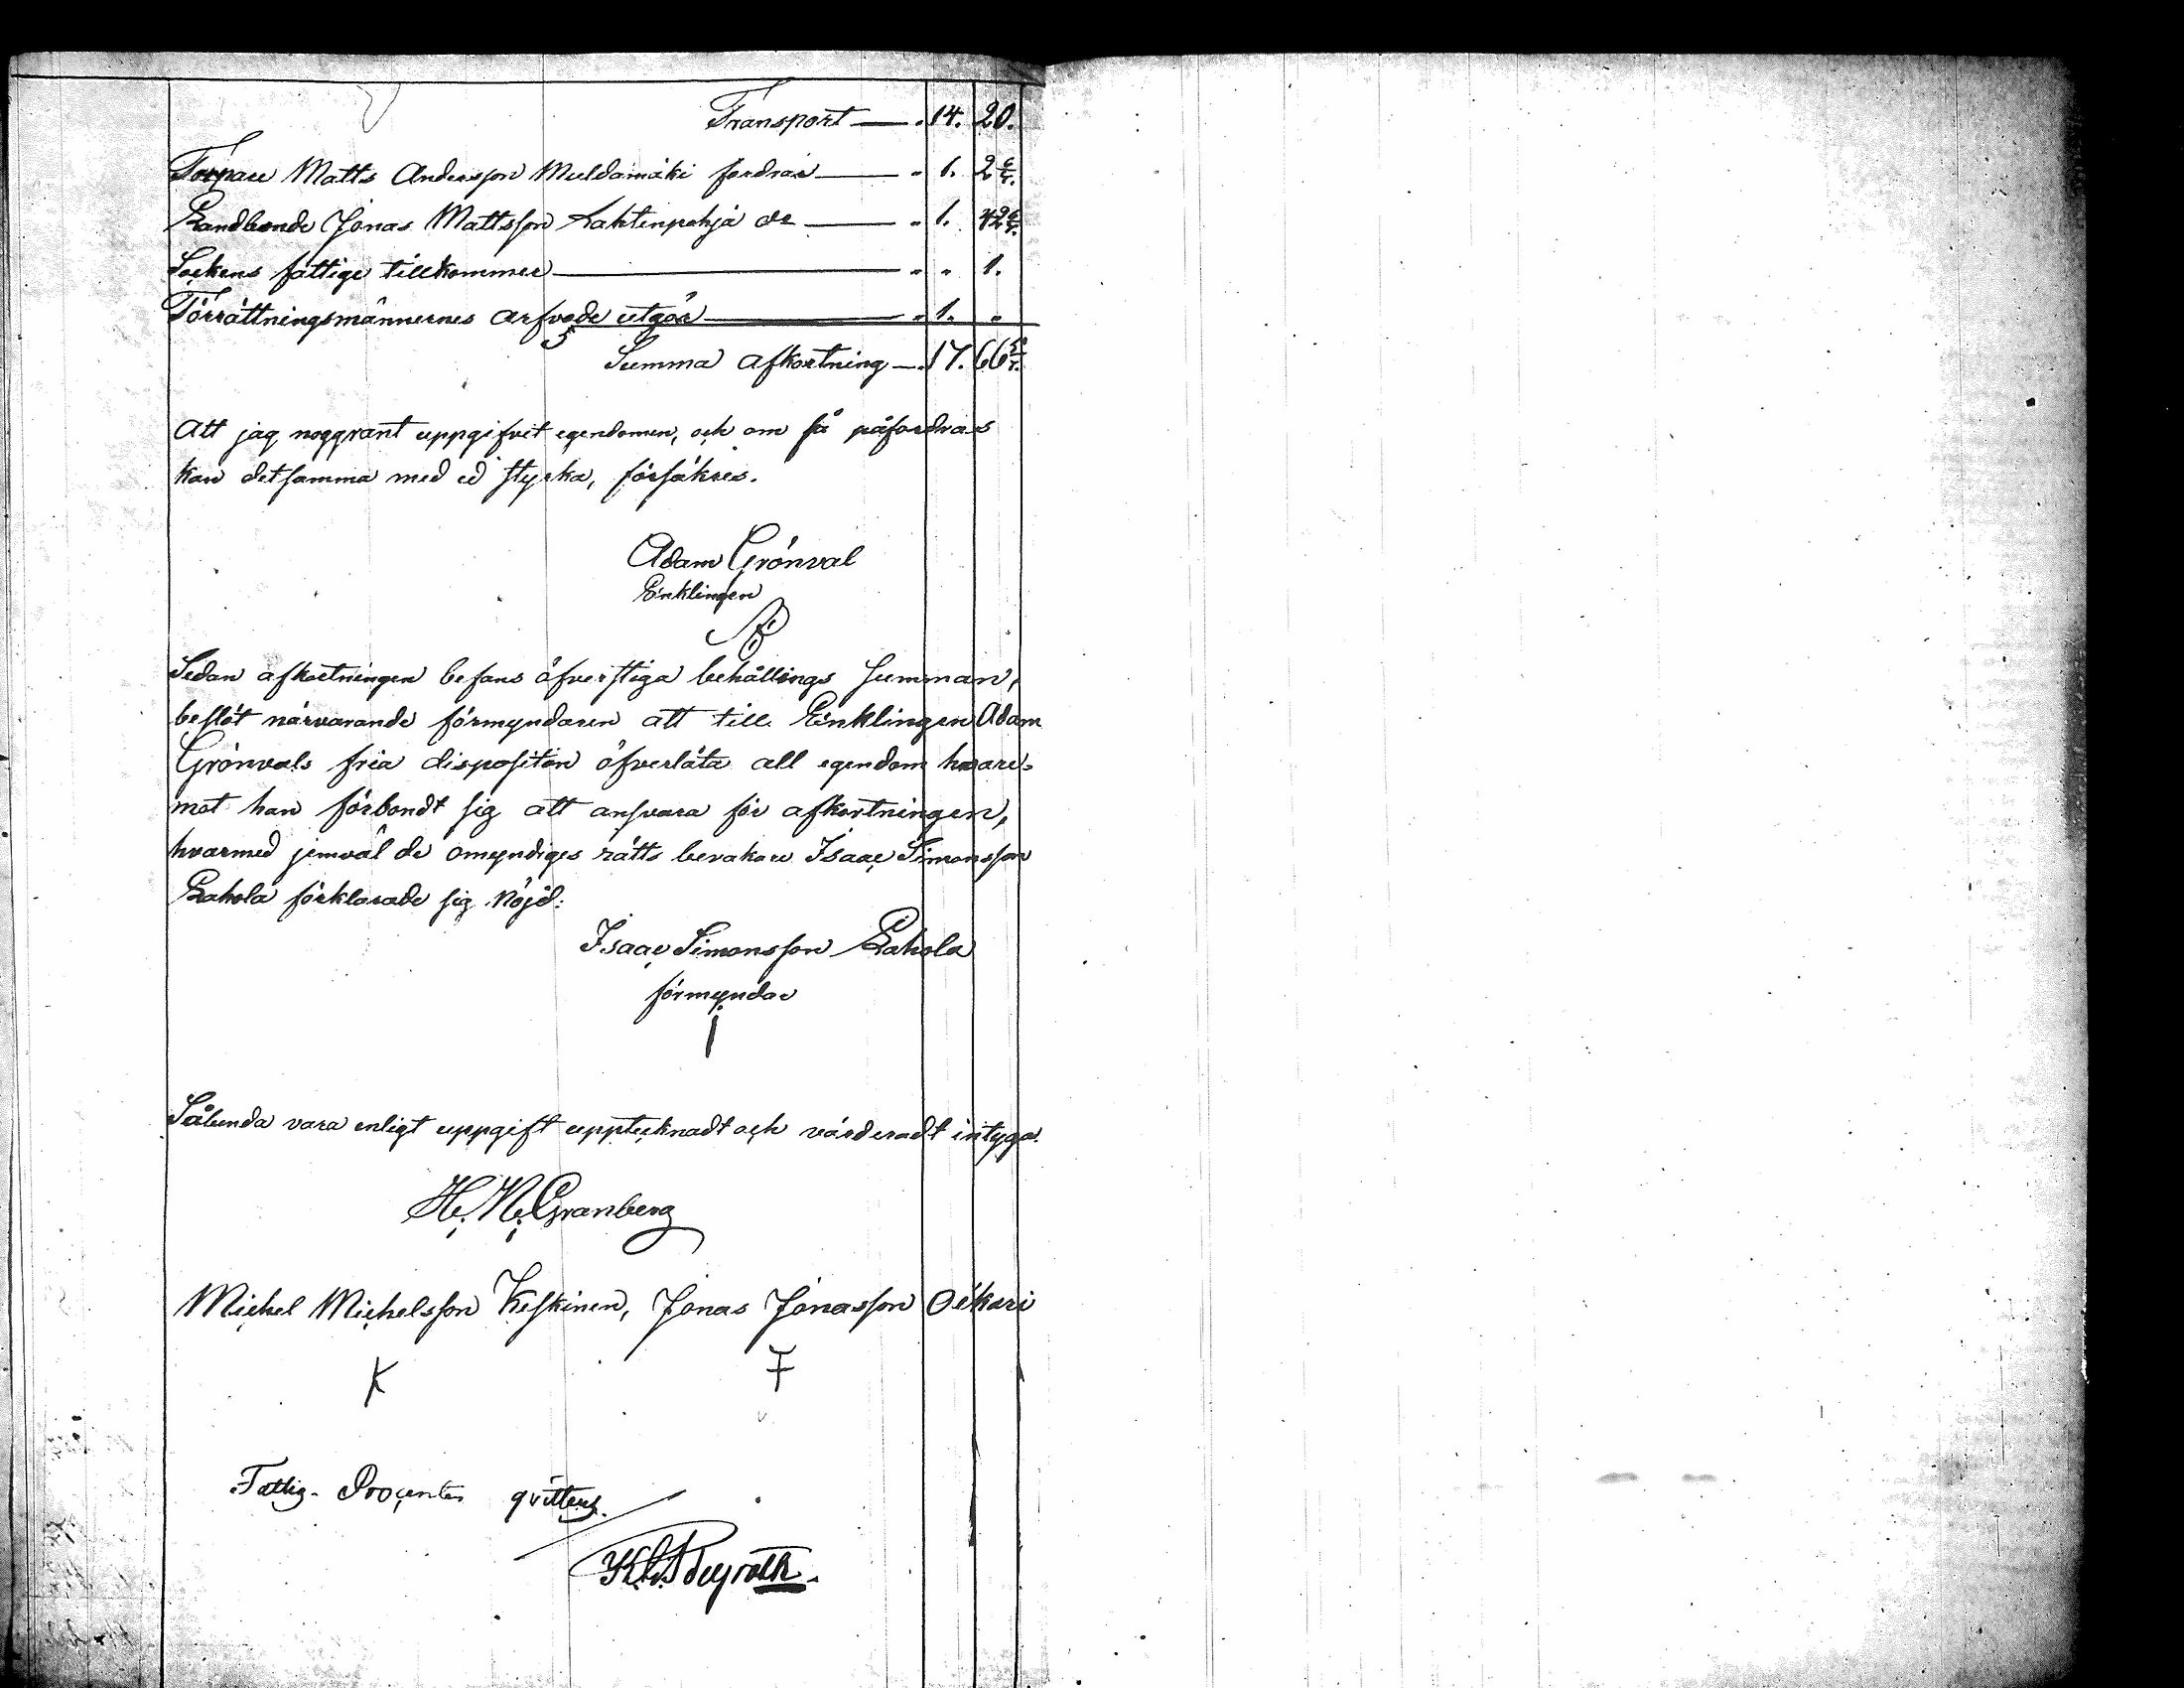 Transport — " 14. 20.
Torpare Matts Andersson Muldaimäki fordrar — " 1. 2 6/7.
Landbonde Jonas Mattsson Lahtenpohja do — " 1. 42 6/7.
Sockens fattige tillkommer — " " 1.
Förrättningsmännernes arfvode utgör — " 1. "
Summa afkortning — " 17. 66 5/7.
Att jag noggrant uppgifvit egendomen, och om så påfordras
kan detsamma med ed styrka, försäkres.
Adam Grönval
Enklingen
Sedan afkortningen befans öfverstiga behållings Summan,
beslöt närvarande förmyndaren att till Enklingen Adam
Grönvals fria disposition öfverlåta all egendom hvare-
mot han förbondt sig att ansvara för afkortningen,
hvarmed jemväl de omyndiges rätts bevakare Isaac Simonsson
Rahola förklarade sig nöjd:
Isaac Simonsson Rahola
förmyndar
Sålunda vara enligt uppgift upptecknadt och värderadt intyga.
H. N. Granberg
Michel Michelsson Keskinen, Jonas Jonasson Oikari
K F
Fattig-Procenten qvitteras.